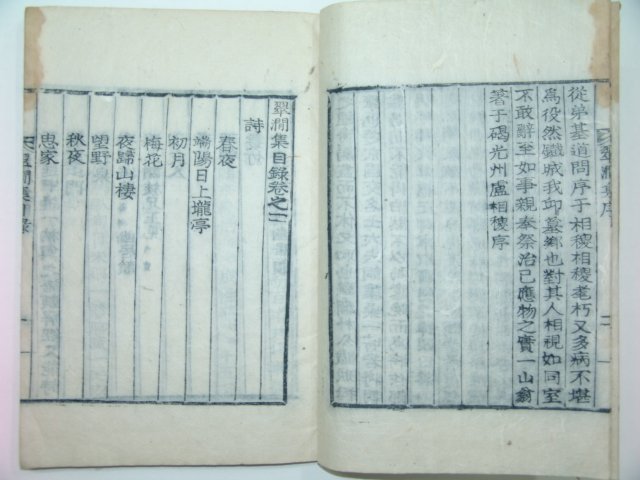 從弟基道問序于相稷相稷耄朽又多病不堪
爲役然殲城我卬纂鄕也對其人相視如同室
不敢辭至如事親奉祭治己應物之實一山翁
著于碣光州盧相稷序
翠澗集序
翠澗集目錄卷之一
詩
春夜
端陽日上壠亭
初月
梅花
夜歸山棲
望野
秋夜
思家
翠澗集目錄